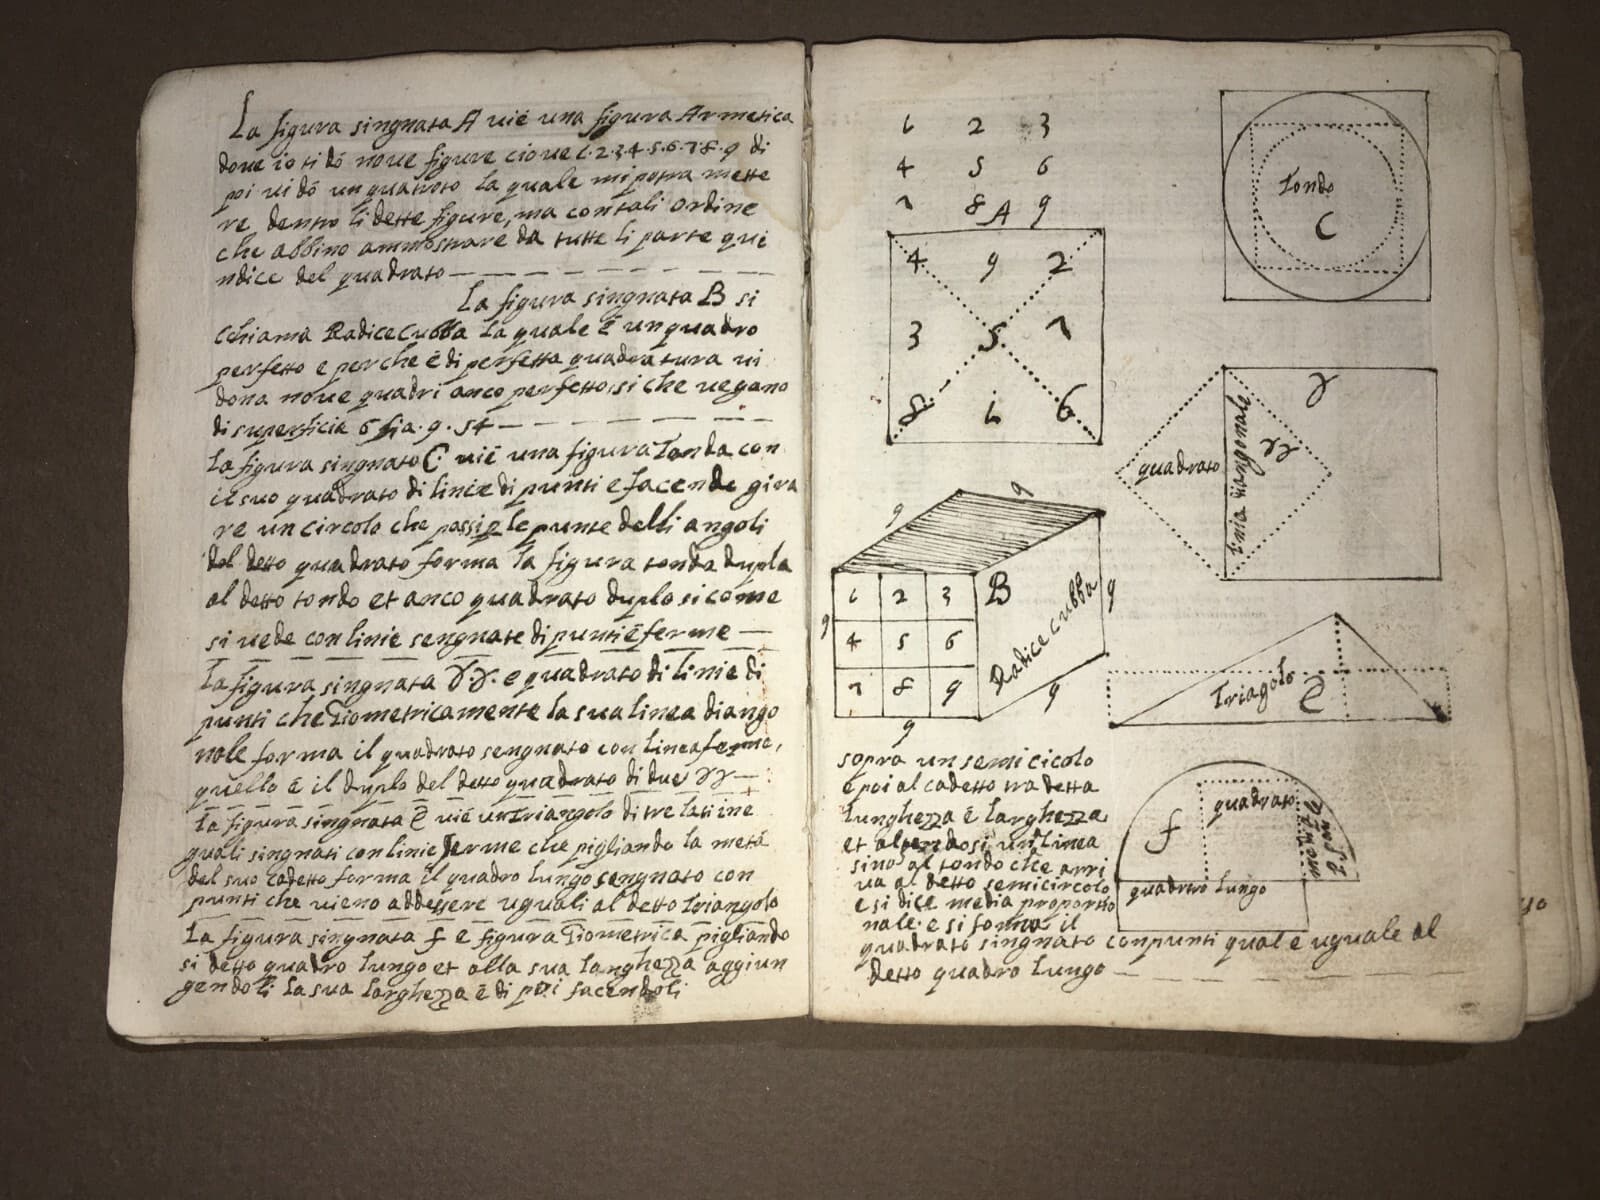 La figura singnata A viè una figura Armetica
dove io ti dò nove figure ciove 1.2.3.4.5.6.7.8.9 di
poi vi dò un quatroto la quale mi potra mette
re dentro li dette figure, ma con tali ordine
che abbino ammostrare da tutte li parte qui
ndice del quadrato
La figura singnata B si
cchiama Radice Cubba la quale è un quadro
perfetto e perche è di perfetta quadratura vi
dona nove quadri anco perfetto, si che vegano
di superficia 6 fia . 9 . 54
la figura singnato C. viè una figura Tonda con
il suo quadrato di linie di punti e facendo gira
re un circolo che passi p le punte delli angoli
del detto quadrato forma la figura tonda dupla
al detto tondo et anco quadrato duplo si come
si vede con linie sengnate di punti e ferme
la figura singnata γ.γ. e quadrato di linie di
punti che Giometricamente la sua linea diango
nale forma il quadrato sengnato con linea ferme,
quello è il duplo del detto quadrato di due γγ
la figura singnata E viè un Triangolo di tre lati ine
quali singnati con linie ferme che pigliando la metà
del suo cadetto forma il quadro lungo sengnato con
punti che vieno addessere uguali al detto triangolo
la figura singnata f e figura Giometrica pigliando
si detto quadro lungo et alla sua langhezza aggiun
gendoli la sua larghezza è di poi facendoli
1 2 3
4 5 6
7 8 9
A
4 9 2
3 5 7
8 1 6
9 9
1 2 3 B
9 4 5 6 9
7 8 9
Radice Cubba
9 9
sopra un semicicolo
e poi al cadetto tra detta
lunghezza è larghezza
et alzandosi un linea
sino al tondo che arri
va al detto semicircolo
e si dice media proportio
nale e si forma il
quadrato singnato con punti qual e uguale al
detto quadro lungo
Tondo
C
γ
quadrato
linia diangonale
γγ
Triagolo E
f
quadrato
quadrro lungo